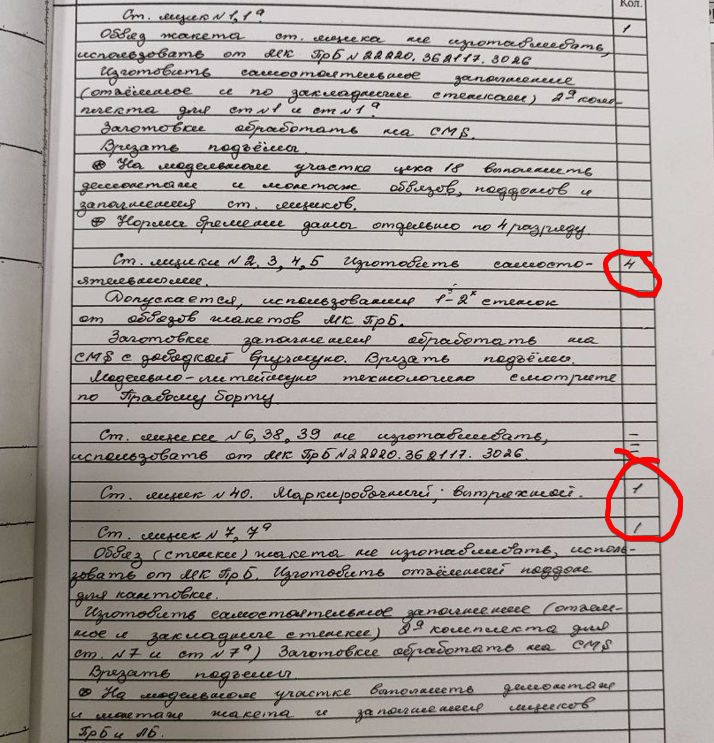 Кол.
Ст. ящик №1,1ª 1
Обвяз жакета ст. ящика не изготавливать,
использовать от МК ПрБ №22220.362117.3026
Изготовить самостоятельное заполнение
(отъёмное и по закладным стенкам) 2ª комп-
лекта для ст №1 и ст №1ª.
Заготовки обработать на CMS.
Врезать подъёмы.
⊛ На модельном участке цеха 18 выполнить
демонтаж и монтаж обвязов, поддонов и
заполнения ст. ящиков.
⊛ Норма времени даны отдельно по 4 разряду.
Ст. ящики №2,3,4,5 Изготовить самосто- 4
ятельными.
Допускается, использования 1-2ˣ стенок
от обвязов жакетов МК ПрБ.
Заготовки заполнения обработать на
CMS с доводкой вручную. Врезать подъёмы.
Модельно-литейную технологию смотрите
по Правому борту
Ст. ящики №6,38,39 не изготавливать,
использовать от МК ПрБ №22220.362117.3026.
Ст. ящик №40. Маркировочный; вытряхной. 1
Ст. ящик №7,7ª 1
Обвяз (стенки) жакета не изготавливать, исполь-
зовать от МК ПрБ. Изготовить отъёмный поддон
для кантовки.
Изготовить самостоятельное заполнение (отъем-
ное и закладные стенки) 2ª комплекта для
ст. №7 и ст №7ª) Заготовки обработать на CMS
Врезать подъемы
⊛ На модельном участке выполнить демонтаж
и монтаж жакета и заполнения ящиков
ПрБ и ЛБ.